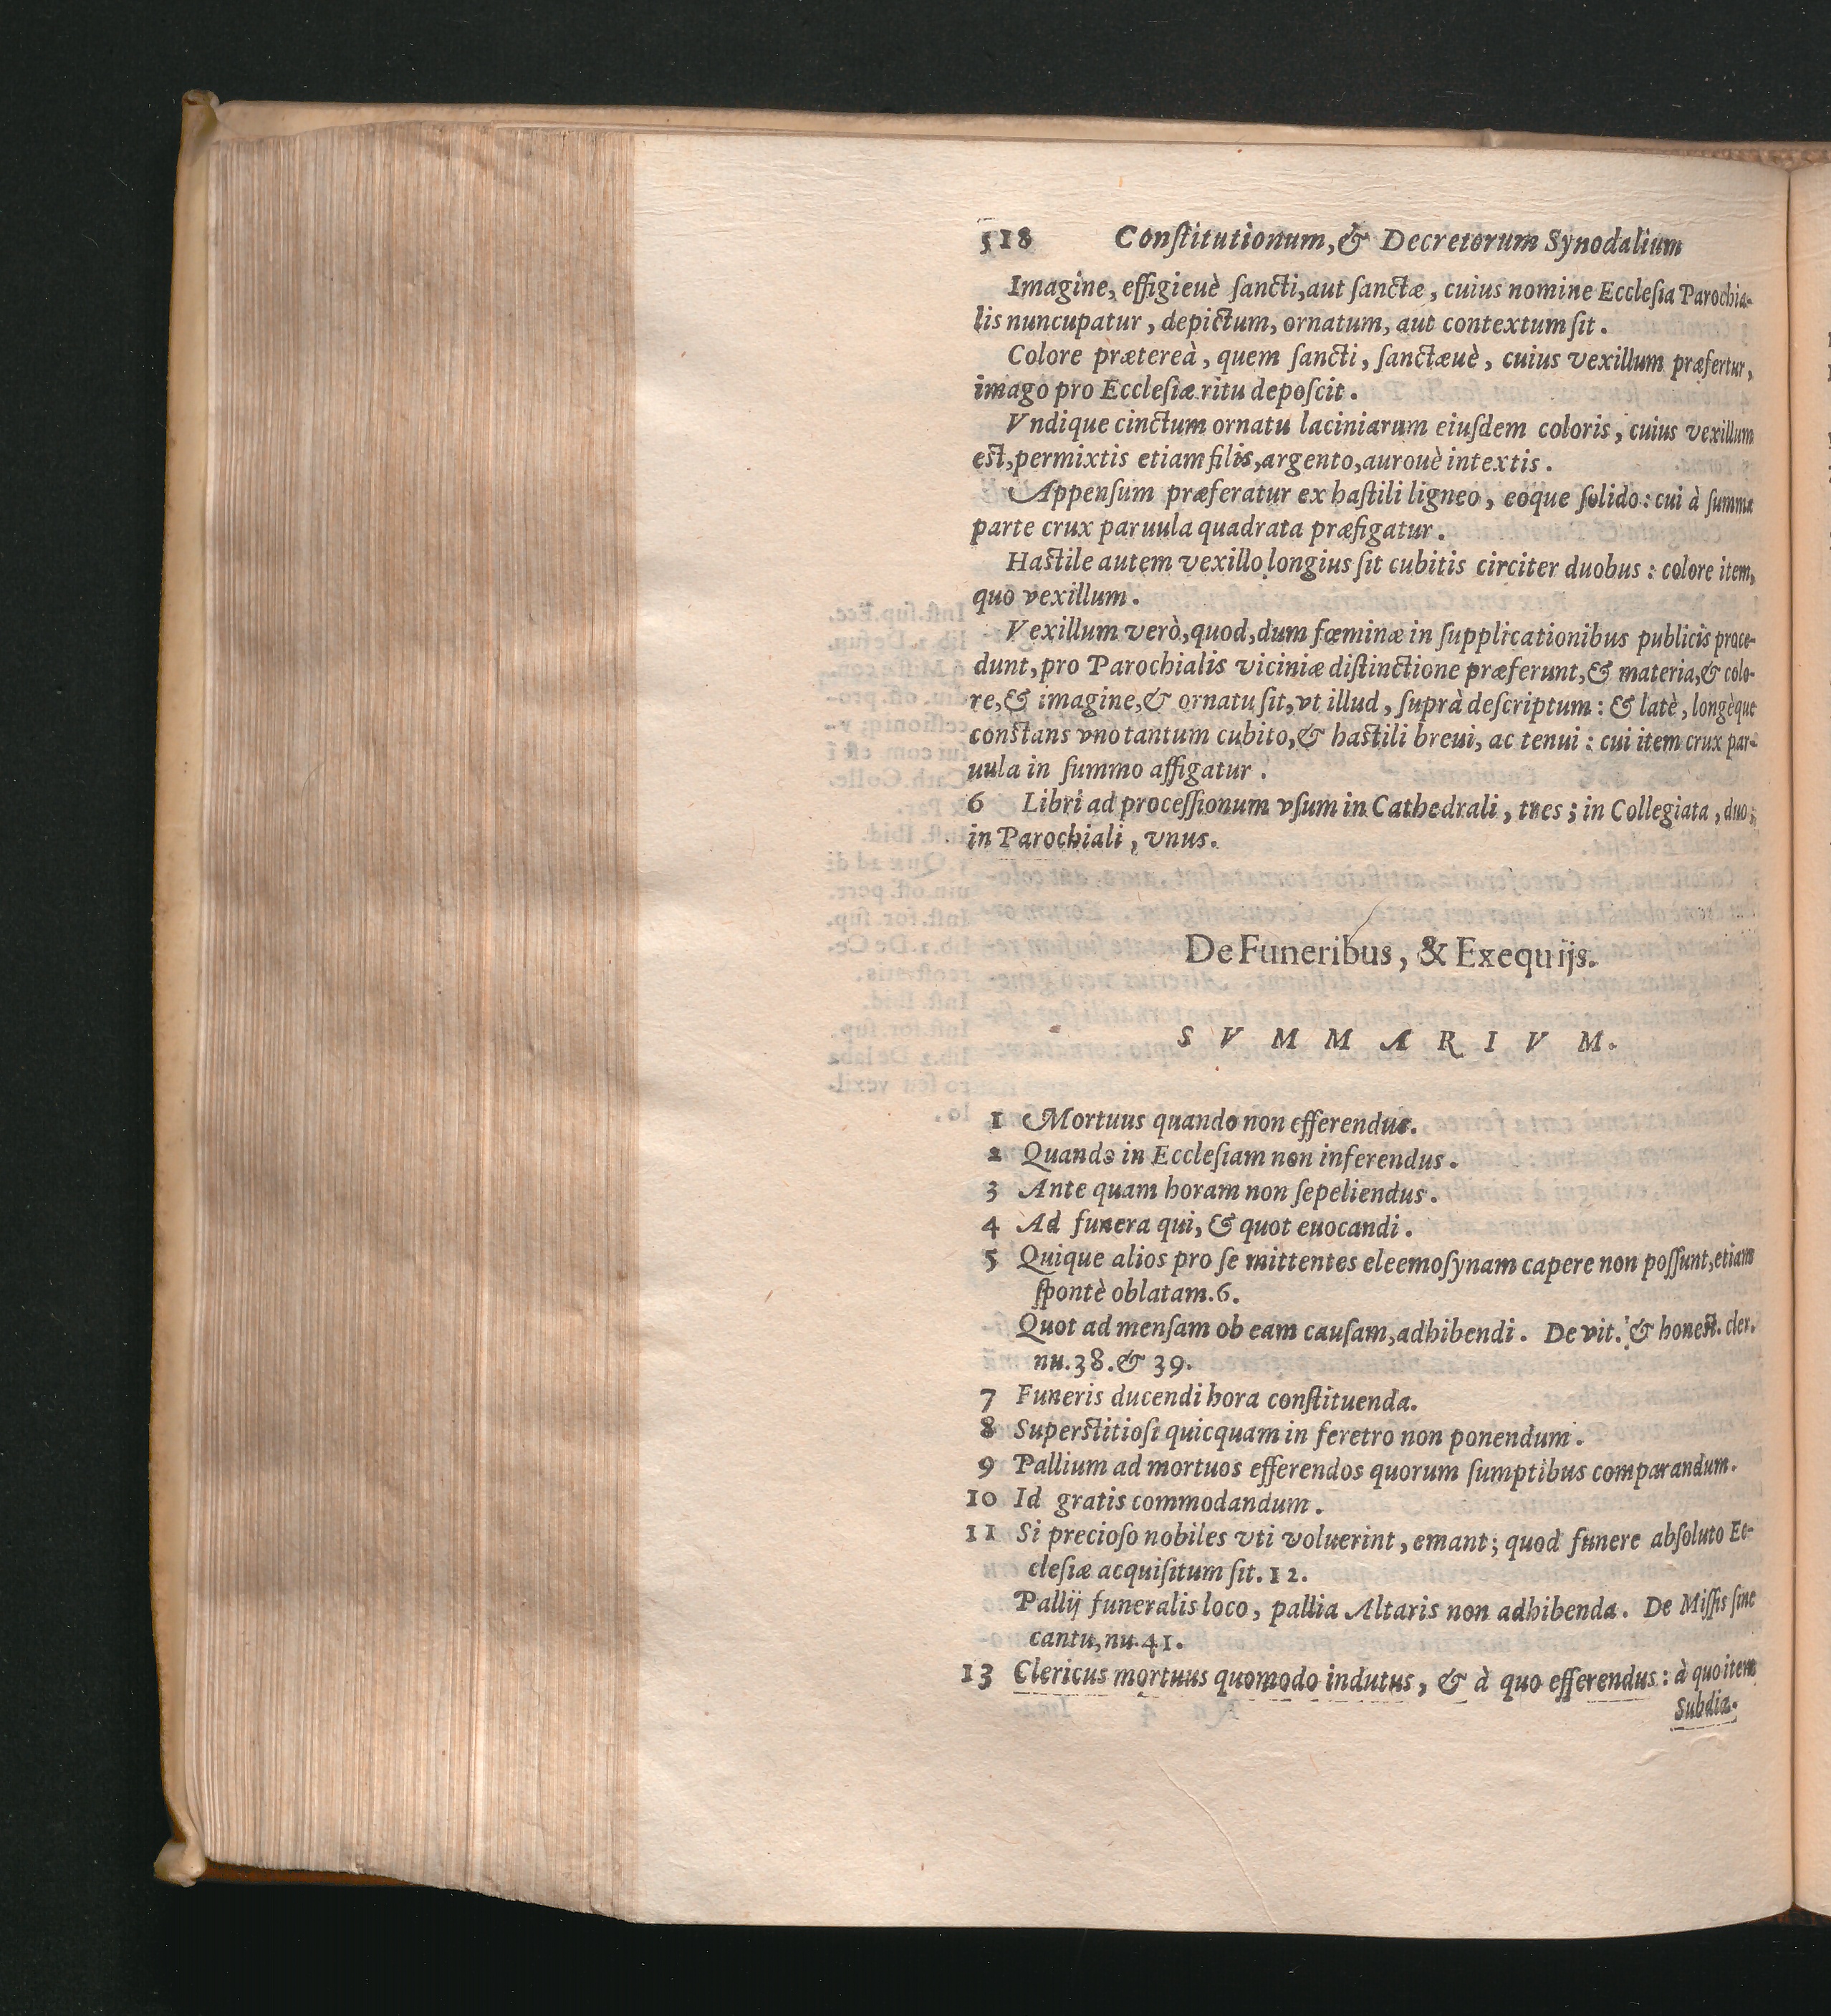 518 Conſtitutionum, & Decretorum Synodalium
Imagine, effigieuè ſancti, aut ſanctæ, cuius nomine Eccleſia Parochia-
lis nuncupatur, depictum, ornatum, aut contextum ſit.
Colore prætereà, quem ſancti, ſanctæuè, cuius vexillum præfertur,
imago pro Eccleſiæ ritu depoſcit.
Vndique cinctum ornatu laciniarum eiuſdem coloris, cuius vexillum
eſt, permixtis etiam filis, argento, aurouè intextis.
Appenſum præferatur ex haſtili ligneo, eoque ſolido: cui à ſumma
parte crux paruula quadrata præfigatur.
Haſtile autem vexillo longius ſit cubitis circiter duobus: colore item,
quo vexillum.
Vexillum verò, quod, dum fœminæ in ſupplicationibus publicis proce-
dunt, pro Parochialis viciniæ diſtinctione præferunt, & materia, & colo-
re, & imagine, & ornatu ſit, vt illud, ſuprà deſcriptum: & latè, longèque
conſtans vno tantum cubito, & haſtili breui, ac tenui: cui item crux par-
uula in ſummo affigatur.
6 Libri ad proceſſionum vſum in Cathedrali, tres; in Collegiata, duo;
in Parochiali, vnus.
De Funeribus, & Exequijs.
SVMMARIVM.
1 Mortuus quando non efferendus.
2 Quando in Eccleſiam non inferendus.
3 Ante quam horam non ſepeliendus.
4 Ad funera qui, & quot euocandi.
5 Quique alios pro ſe mittentes eleemoſynam capere non poſſunt, etiam
ſpontè oblatam. 6.
Quot ad menſam ob eam cauſam, adhibendi. De vit. & honeſt. cler.
nu. 38. & 39.
7 Funeris ducendi hora conſtituenda.
8 Superſtitioſi quicquam in feretro non ponendum.
9 Pallium ad mortuos efferendos quorum ſumptibus comparandum.
10 Id gratis commodandum.
11 Si precioſo nobiles vti voluerint, emant; quod funere abſoluto Ec-
cleſiæ acquiſitum ſit. 12.
Pallij funeralis loco, pallia Altaris non adhibenda. De Miſſis ſine
cantu, nu. 41.
13 Clericus mortuus quomodo indutus, & à quo efferendus: à quo item
Subdia-